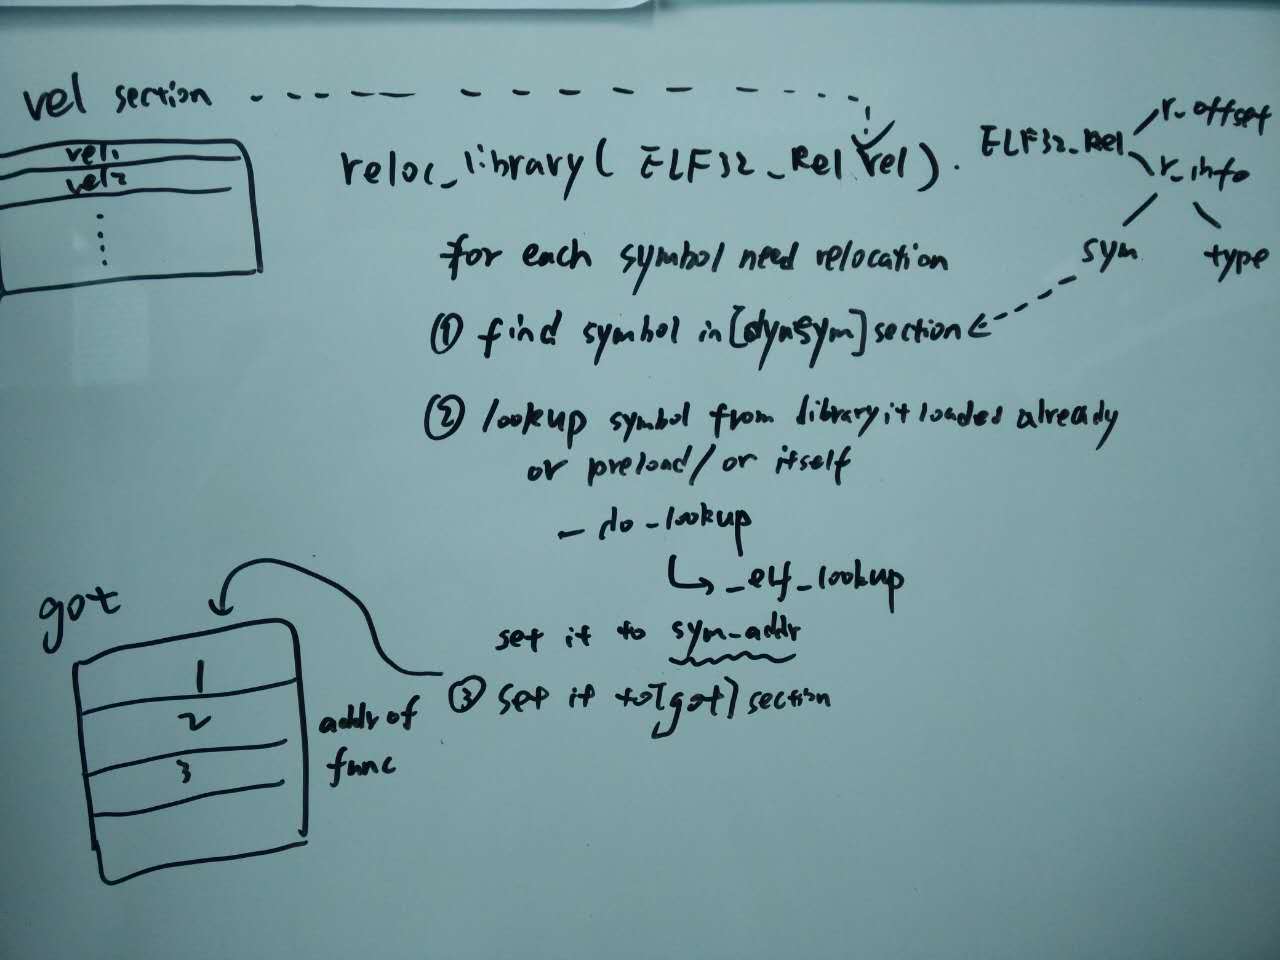 rel section
rel1
rel2
reloc_library( ELF32_Rel rel).
ELF32_Rel
r_offset
r_info
sym type
for each symbol need relocation
① find symbol in [dynsym] section
② lookup symbol from library it loaded already
or preload/ or itself
_do_lookup
_elf_lookup
set it to sym_addr
③ set it to [got] section
got
1
2
3
addr of
func